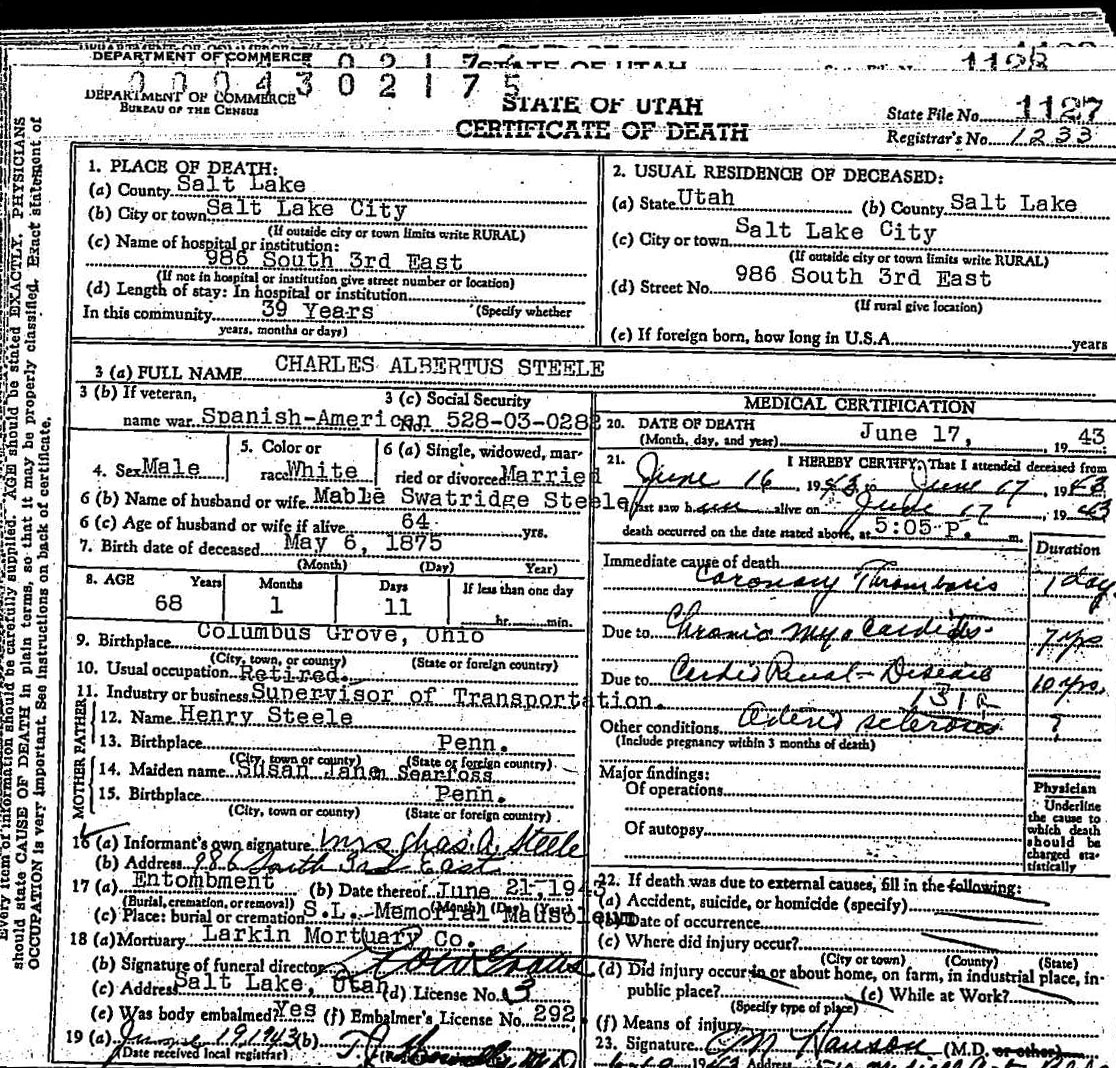 DEPARTMENT OF COMMERCE
STATE OF UTAH
1128
0 0 0 4 3 0 2 1 7 5
DEPARTMENT OF COMMERCE
BUREAU OF THE CENSUS
STATE OF UTAH
CERTIFICATE OF DEATH
State File No. 1127
Registrar's No. 1233
should be stated EXACTLY. PHYSICIANS
should state CAUSE OF DEATH in plain terms, so that it may be properly classified. Exact statement of
OCCUPATION is very important. See instructions on back of certificate.
1. PLACE OF DEATH:
(a) County Salt Lake
(b) City or town Salt Lake City
(If outside city or town limits write RURAL)
(c) Name of hospital or institution:
986 South 3rd East
(If not in hospital or institution give street number or location)
(d) Length of stay: In hospital or institution
In this community 39 Years (Specify whether
years, months or days)
2. USUAL RESIDENCE OF DECEASED:
(a) State Utah (b) County Salt Lake
(c) City or town Salt Lake City
(If outside city or town limits write RURAL)
(d) Street No. 986 South 3rd East
(If rural give location)
(e) If foreign born, how long in U.S.A. years
3 (a) FULL NAME CHARLES ALBERTUS STEELE
3 (b) If veteran, 3 (c) Social Security
name war Spanish-American No. 528-03-0282
4. Sex Male 5. Color or race White 6 (a) Single, widowed, married or divorced Married
6 (b) Name of husband or wife Mable Swatridge Steele
6 (c) Age of husband or wife if alive 64 yrs.
7. Birth date of deceased May 6, 1875
(Month) (Day) Year)
8. AGE Years Months Days If less than one day
68 1 11 hr. min.
9. Birthplace Columbus Grove, Ohio
(City, town, or county) (State or foreign country)
10. Usual occupation Retired.
11. Industry or business Supervisor of Transportation.
FATHER
12. Name Henry Steele
13. Birthplace Penn.
(City, town or county) (State or foreign country)
MOTHER
14. Maiden name Susan Jane Searfoss
15. Birthplace Penn.
(City, town or county) (State or foreign country)
16 (a) Informant's own signature Mrs Chas. A. Steele
(b) Address 986 South 3rd East
17 (a) Entombment (b) Date thereof June 21, 1943
(Burial, cremation, or removal) (Month) (Day) (Year)
(c) Place: burial or cremation S.L. Memorial Mausoleum
18 (a) Mortuary Larkin Mortuary Co.
(b) Signature of funeral director
(c) Address Salt Lake, Utah (d) License No. 3
(e) Was body embalmed? Yes (f) Embalmer's License No. 292
19 (a) June 19 1943 (b)
(Date received local registrar)
MEDICAL CERTIFICATION
20. DATE OF DEATH
(Month, day, and year) June 17, 1943
21. I HEREBY CERTIFY, That I attended deceased from
June 16, 1943 to June 17, 1943
last saw him alive on June 17, 1943
death occurred on the date stated above, at 5:05 P. m.
Duration
Immediate cause of death
Coronary Thrombosis 1 day
Due to Chronic Myocarditis 7 yrs
Due to Cardio Renal-Disease 10 yrs.
131a
Other conditions Arterio sclerosis ?
(Include pregnancy within 3 months of death)
Major findings:
Of operations
Of autopsy
Physician
Underline
the cause to
which death
should be
charged sta-
tistically
22. If death was due to external causes, fill in the following:
(a) Accident, suicide, or homicide (specify)
(b) Date of occurrence
(c) Where did injury occur?
(City or town) (County) (State)
(d) Did injury occur in or about home, on farm, in industrial place, in-
public place? (e) While at Work?
(Specify type of place)
(f) Means of injury
23. Signature C M Hanson (M.D. or other)